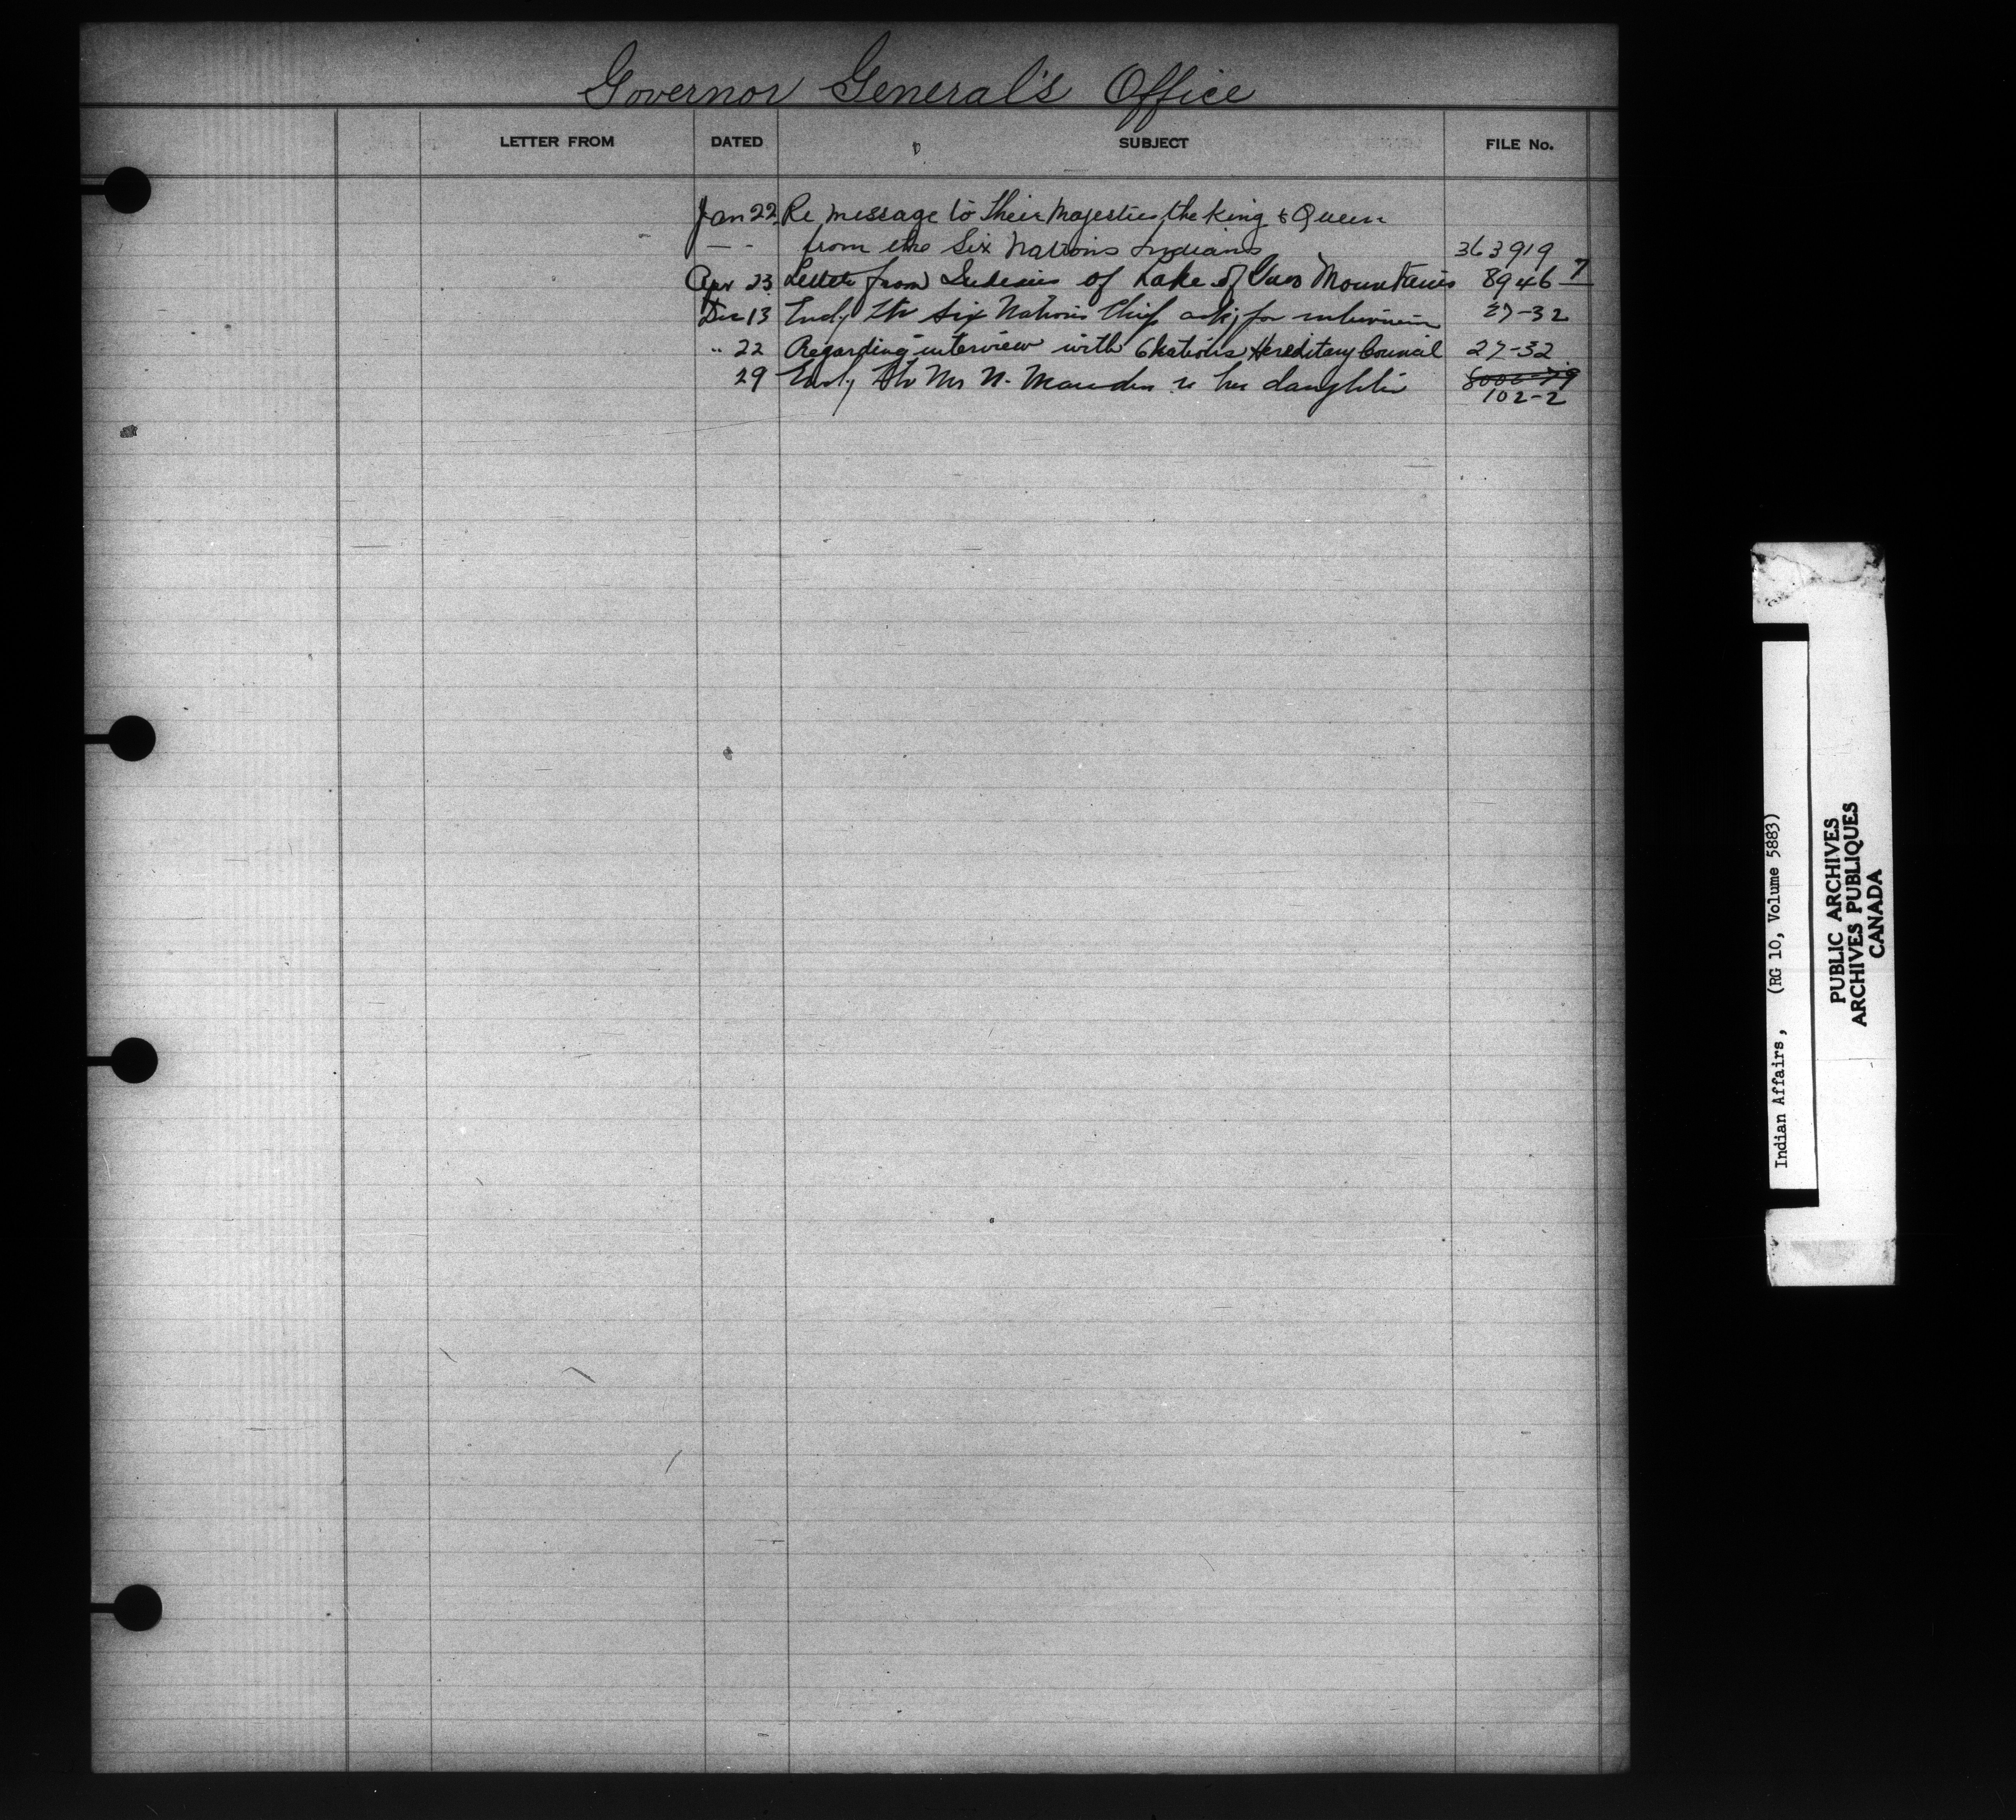 Governor General's Office
LETTER FROM DATED SUBJECT FILE No.
Jan 22 Re message to their Majesties the King & Queen
— - from the Six Nations Indians 363919
Apr 23 Letter from Indians of Lake of Two Mountains 8946 7
Dec 13 Encl'g ltr Six Nations Chief ask'g for interview 27-32
" 22 Regarding interview with 6 Nations Hereditary Council 27-32
29 Encl'g ltr Mrs N. re her daughter
102-2
Indian Affairs, (RG 10, Volume 5883)
PUBLIC ARCHIVES
ARCHIVES PUBLIQUES
CANADA